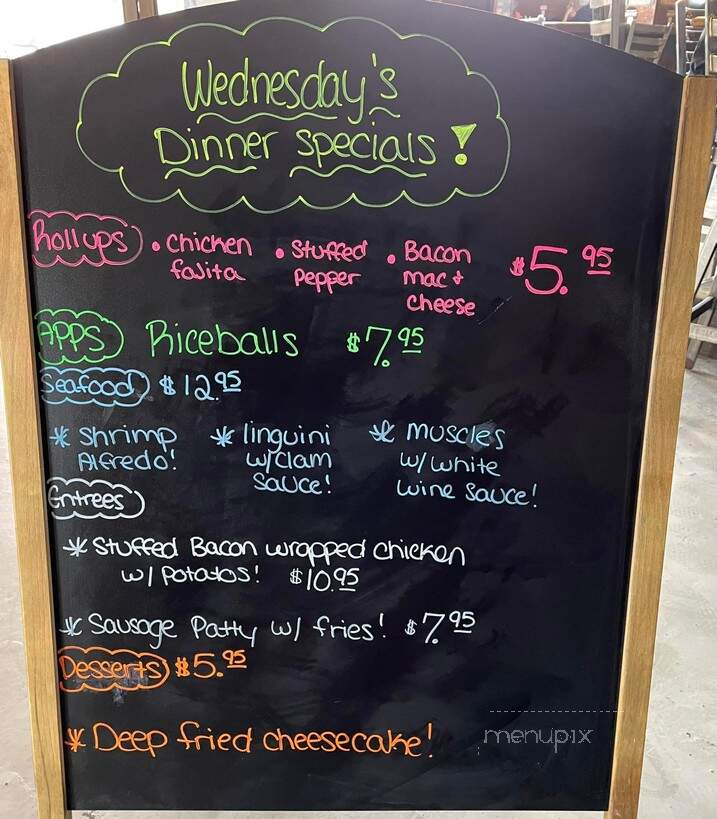 Wednesday's
Dinner Specials!
Rollups • Chicken fajita • Stuffed Pepper • Bacon mac + cheese $5.95
APPS Riceballs $7.95
Seafood $12.95
* Shrimp Alfredo! * linguini w/clam sauce! * muscles w/white wine sauce!
Entrees
* Stuffed Bacon wrapped chicken
w/ Potatos! $10.95
* Sausage Patty w/ fries! $7.95
Desserts $5.95
* Deep fried cheesecake!
menupix